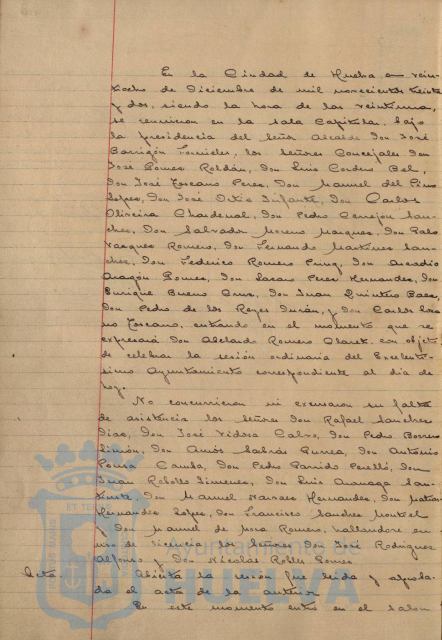 En la Ciudad de Huelva a vein-
tiocho de Diciembre de mil novecientos treinta
y dos, siendo la hora de las veintiuna,
se reunieron en la sala Capitular bajo
la presidencia del Señor Alcalde Don José
Barrigón Fornieles, los señores Concejales Don
José Gomez Roldán, Don Luis Cordero Bel,
Don José Toscano Perez, Don Manuel del Pino
Lopez, Don José Ortiz Infante, Don Carlos
Oliveira Chardenal, Don Pedro Cerrejon San-
chez, Don Salvador Moreno Marquez, Don Pablo
Vazquez Romero, Don Fernando Martinez San-
chez, Don Federico Romero Puig, Don Arcadio
Aragón Gomez, Don Lazaro Perez Hernandez, Don
Enrique Bueno Cruz, Don Juan Quintero Baez,
Don Pedro de los Reyes Durán, y Don Carlos
no Toscano, entrando en el momento que se
expresará Don Abelardo Romero Claret con objeto
de celebrar la sesión ordinaria del Excelentí-
simo Ayuntamiento correspondiente al día de
hoy.
No concurrieron ni excusaron su falta
de asistencia los señores Don Rafael Sanchez
Diaz, Don José Tidora Calvo, Don Pedro Borrero
Limón, Don Amós Sabrás Gurrea, Don Antonio
Pousa Camba, Don Pedro Garrido Perelló, Don
Juan Rebollo Jimenez, Don Luis
Don Manuel Navarro Hernandez, Don
Hernandez Lopez, Don Francisco Sanchez
y Don Manuel de Mora Romero, hallandose en
uso de licencia los señores Don José Rodriguez
Alfonso y Don Nicolás Robles Gomez
Acta. Abierta la sesión fue leida y aproba-
da el acta de la anterior
En este momento entra en el salon
Ayuntamiento de
HUELVA